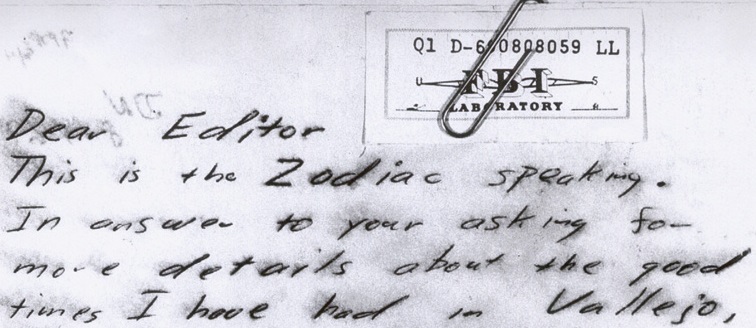 Q1 D-690808059 LL
U S
FBI
LABORATORY
Dear Editor
This is the Zodiac speaking.
In answer to your asking for
more details about the good
times I have had in Vallejo,